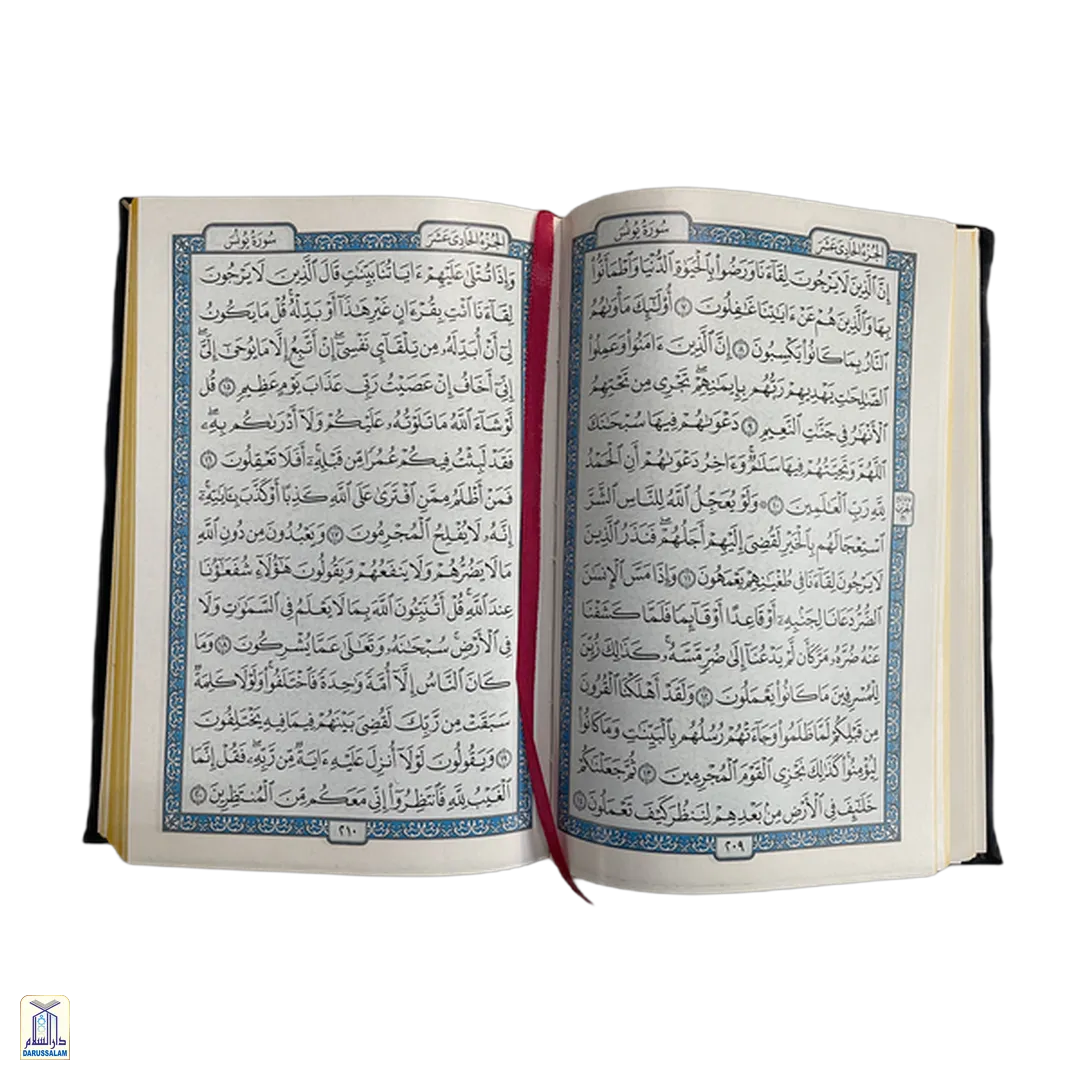 سُورَةُ يُونُسَ
الجُزْءُ الحَادِىَ عَشَرَ
إِنَّ ٱلَّذِينَ لَا يَرْجُونَ لِقَآءَنَا وَرَضُوا۟ بِٱلْحَيَوٰةِ ٱلدُّنْيَا وَٱطْمَأَنُّوا۟
بِهَا وَٱلَّذِينَ هُمْ عَنْ ءَايَٰتِنَا غَٰفِلُونَ ٧ أُو۟لَٰٓئِكَ مَأْوَىٰهُمُ
ٱلنَّارُ بِمَا كَانُوا۟ يَكْسِبُونَ ٨ إِنَّ ٱلَّذِينَ ءَامَنُوا۟ وَعَمِلُوا۟
ٱلصَّٰلِحَٰتِ يَهْدِيهِمْ رَبُّهُم بِإِيمَٰنِهِمْ ۖ تَجْرِى مِن تَحْتِهِمُ
ٱلْأَنْهَٰرُ فِى جَنَّٰتِ ٱلنَّعِيمِ ٩ دَعْوَىٰهُمْ فِيهَا سُبْحَٰنَكَ
ٱللَّهُمَّ وَتَحِيَّتُهُمْ فِيهَا سَلَٰمٌ ۚ وَءَاخِرُ دَعْوَىٰهُمْ أَنِ ٱلْحَمْدُ
لِلَّهِ رَبِّ ٱلْعَٰلَمِينَ ١٠ ۞ وَلَوْ يُعَجِّلُ ٱللَّهُ لِلنَّاسِ ٱلشَّرَّ
ٱسْتِعْجَالَهُم بِٱلْخَيْرِ لَقُضِىَ إِلَيْهِمْ أَجَلُهُمْ ۖ فَنَذَرُ ٱلَّذِينَ
لَا يَرْجُونَ لِقَآءَنَا فِى طُغْيَٰنِهِمْ يَعْمَهُونَ ١١ وَإِذَا مَسَّ ٱلْإِنسَٰنَ
ٱلضُّرُّ دَعَانَا لِجَنۢبِهِۦٓ أَوْ قَاعِدًا أَوْ قَآئِمًا فَلَمَّا كَشَفْنَا
عَنْهُ ضُرَّهُۥ مَرَّ كَأَن لَّمْ يَدْعُنَآ إِلَىٰ ضُرٍّ مَّسَّهُۥ ۚ كَذَٰلِكَ زُيِّنَ
لِلْمُسْرِفِينَ مَا كَانُوا۟ يَعْمَلُونَ ١٢ وَلَقَدْ أَهْلَكْنَا ٱلْقُرُونَ
مِن قَبْلِكُمْ لَمَّا ظَلَمُوا۟ وَجَآءَتْهُمْ رُسُلُهُم بِٱلْبَيِّنَٰتِ وَمَا كَانُوا۟
لِيُؤْمِنُوا۟ ۚ كَذَٰلِكَ نَجْزِى ٱلْقَوْمَ ٱلْمُجْرِمِينَ ١٣ ثُمَّ جَعَلْنَٰكُمْ
خَلَٰٓئِفَ فِى ٱلْأَرْضِ مِنۢ بَعْدِهِمْ لِنَنظُرَ كَيْفَ تَعْمَلُونَ ١٤
٢٠٩
سُورَةُ يُونُسَ
الجُزْءُ الحَادِىَ عَشَرَ
وَإِذَا تُتْلَىٰ عَلَيْهِمْ ءَايَاتُنَا بَيِّنَٰتٍ ۙ قَالَ ٱلَّذِينَ لَا يَرْجُونَ
لِقَآءَنَا ٱئْتِ بِقُرْءَانٍ غَيْرِ هَٰذَآ أَوْ بَدِّلْهُ ۚ قُلْ مَا يَكُونُ
لِىٓ أَنْ أُبَدِّلَهُۥ مِن تِلْقَآئِ نَفْسِىٓ ۖ إِنْ أَتَّبِعُ إِلَّا مَا يُوحَىٰٓ إِلَىَّ ۖ
إِنِّىٓ أَخَافُ إِنْ عَصَيْتُ رَبِّى عَذَابَ يَوْمٍ عَظِيمٍ ١٥ قُل
لَّوْ شَآءَ ٱللَّهُ مَا تَلَوْتُهُۥ عَلَيْكُمْ وَلَآ أَدْرَىٰكُم بِهِۦ ۖ
فَقَدْ لَبِثْتُ فِيكُمْ عُمُرًا مِّن قَبْلِهِۦٓ ۚ أَفَلَا تَعْقِلُونَ ١٦
فَمَنْ أَظْلَمُ مِمَّنِ ٱفْتَرَىٰ عَلَى ٱللَّهِ كَذِبًا أَوْ كَذَّبَ بِـَٔايَٰتِهِۦٓ ۚ
إِنَّهُۥ لَا يُفْلِحُ ٱلْمُجْرِمُونَ ١٧ وَيَعْبُدُونَ مِن دُونِ ٱللَّهِ
مَا لَا يَضُرُّهُمْ وَلَا يَنفَعُهُمْ وَيَقُولُونَ هَٰٓؤُلَآءِ شُفَعَٰٓؤُنَا
عِندَ ٱللَّهِ ۚ قُلْ أَتُنَبِّـُٔونَ ٱللَّهَ بِمَا لَا يَعْلَمُ فِى ٱلسَّمَٰوَٰتِ وَلَا
فِى ٱلْأَرْضِ ۚ سُبْحَٰنَهُۥ وَتَعَٰلَىٰ عَمَّا يُشْرِكُونَ ١٨ وَمَا
كَانَ ٱلنَّاسُ إِلَّآ أُمَّةً وَٰحِدَةً فَٱخْتَلَفُوا۟ ۚ وَلَوْلَا كَلِمَةٌ
سَبَقَتْ مِن رَّبِّكَ لَقُضِىَ بَيْنَهُمْ فِيمَا فِيهِ يَخْتَلِفُونَ
١٩ وَيَقُولُونَ لَوْلَآ أُنزِلَ عَلَيْهِ ءَايَةٌ مِّن رَّبِّهِۦ ۖ فَقُلْ إِنَّمَا
ٱلْغَيْبُ لِلَّهِ فَٱنتَظِرُوٓا۟ إِنِّى مَعَكُم مِّنَ ٱلْمُنتَظِرِينَ ٢٠
٢١٠
دار السلام
DARUSSALAM